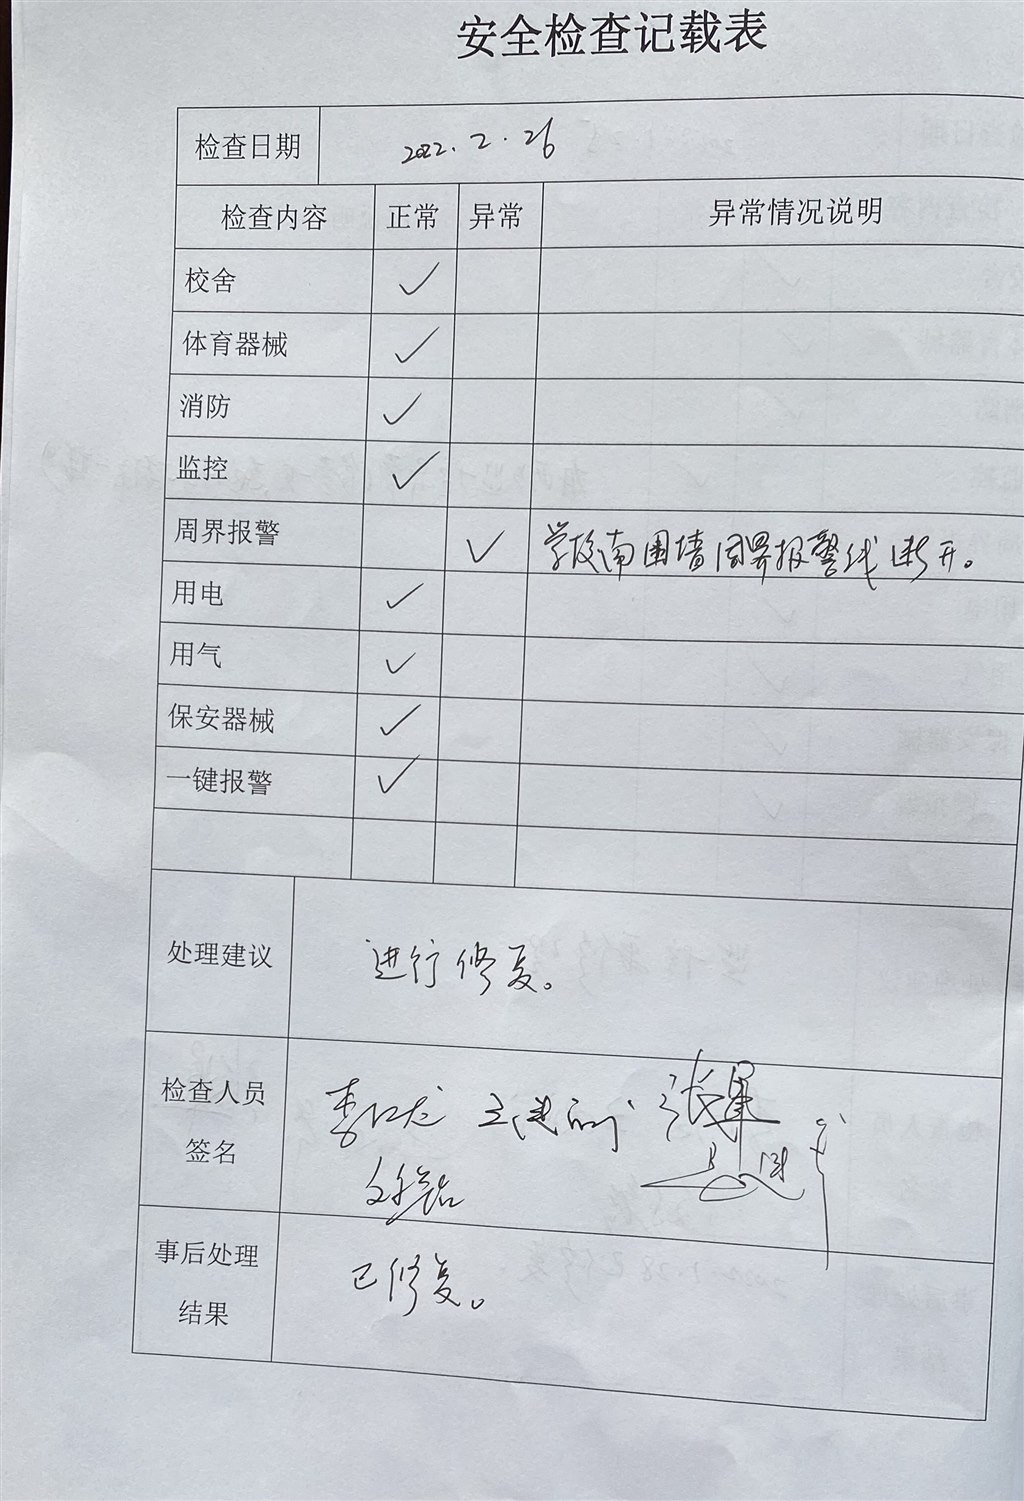 安全检查记载表
检查日期 2022.2.26
检查内容 正常 异常 异常情况说明
校舍 ✓
体育器械 ✓
消防 ✓
监控 ✓
周界报警 ✓ 学校南围墙周界报警线断开。
用电 ✓
用气 ✓
保安器械 ✓
一键报警 ✓
处理建议 进行修复。
检查人员
签名
事后处理 已修复。
结果